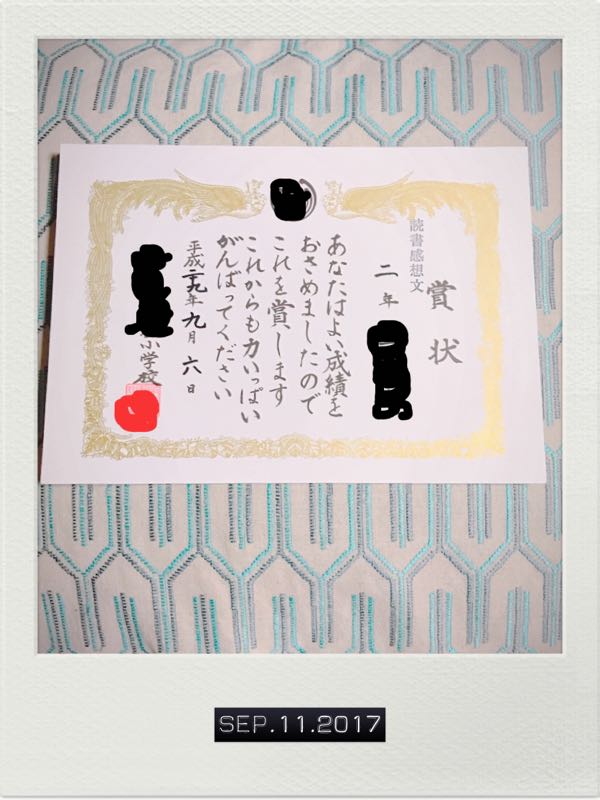 賞状
読書感想文
二年
あなたはよい成績を
おさめましたので
これを賞します
これからも力いっぱい
がんばってください
平成二九年九月六日
小学校
SEP.11.2017